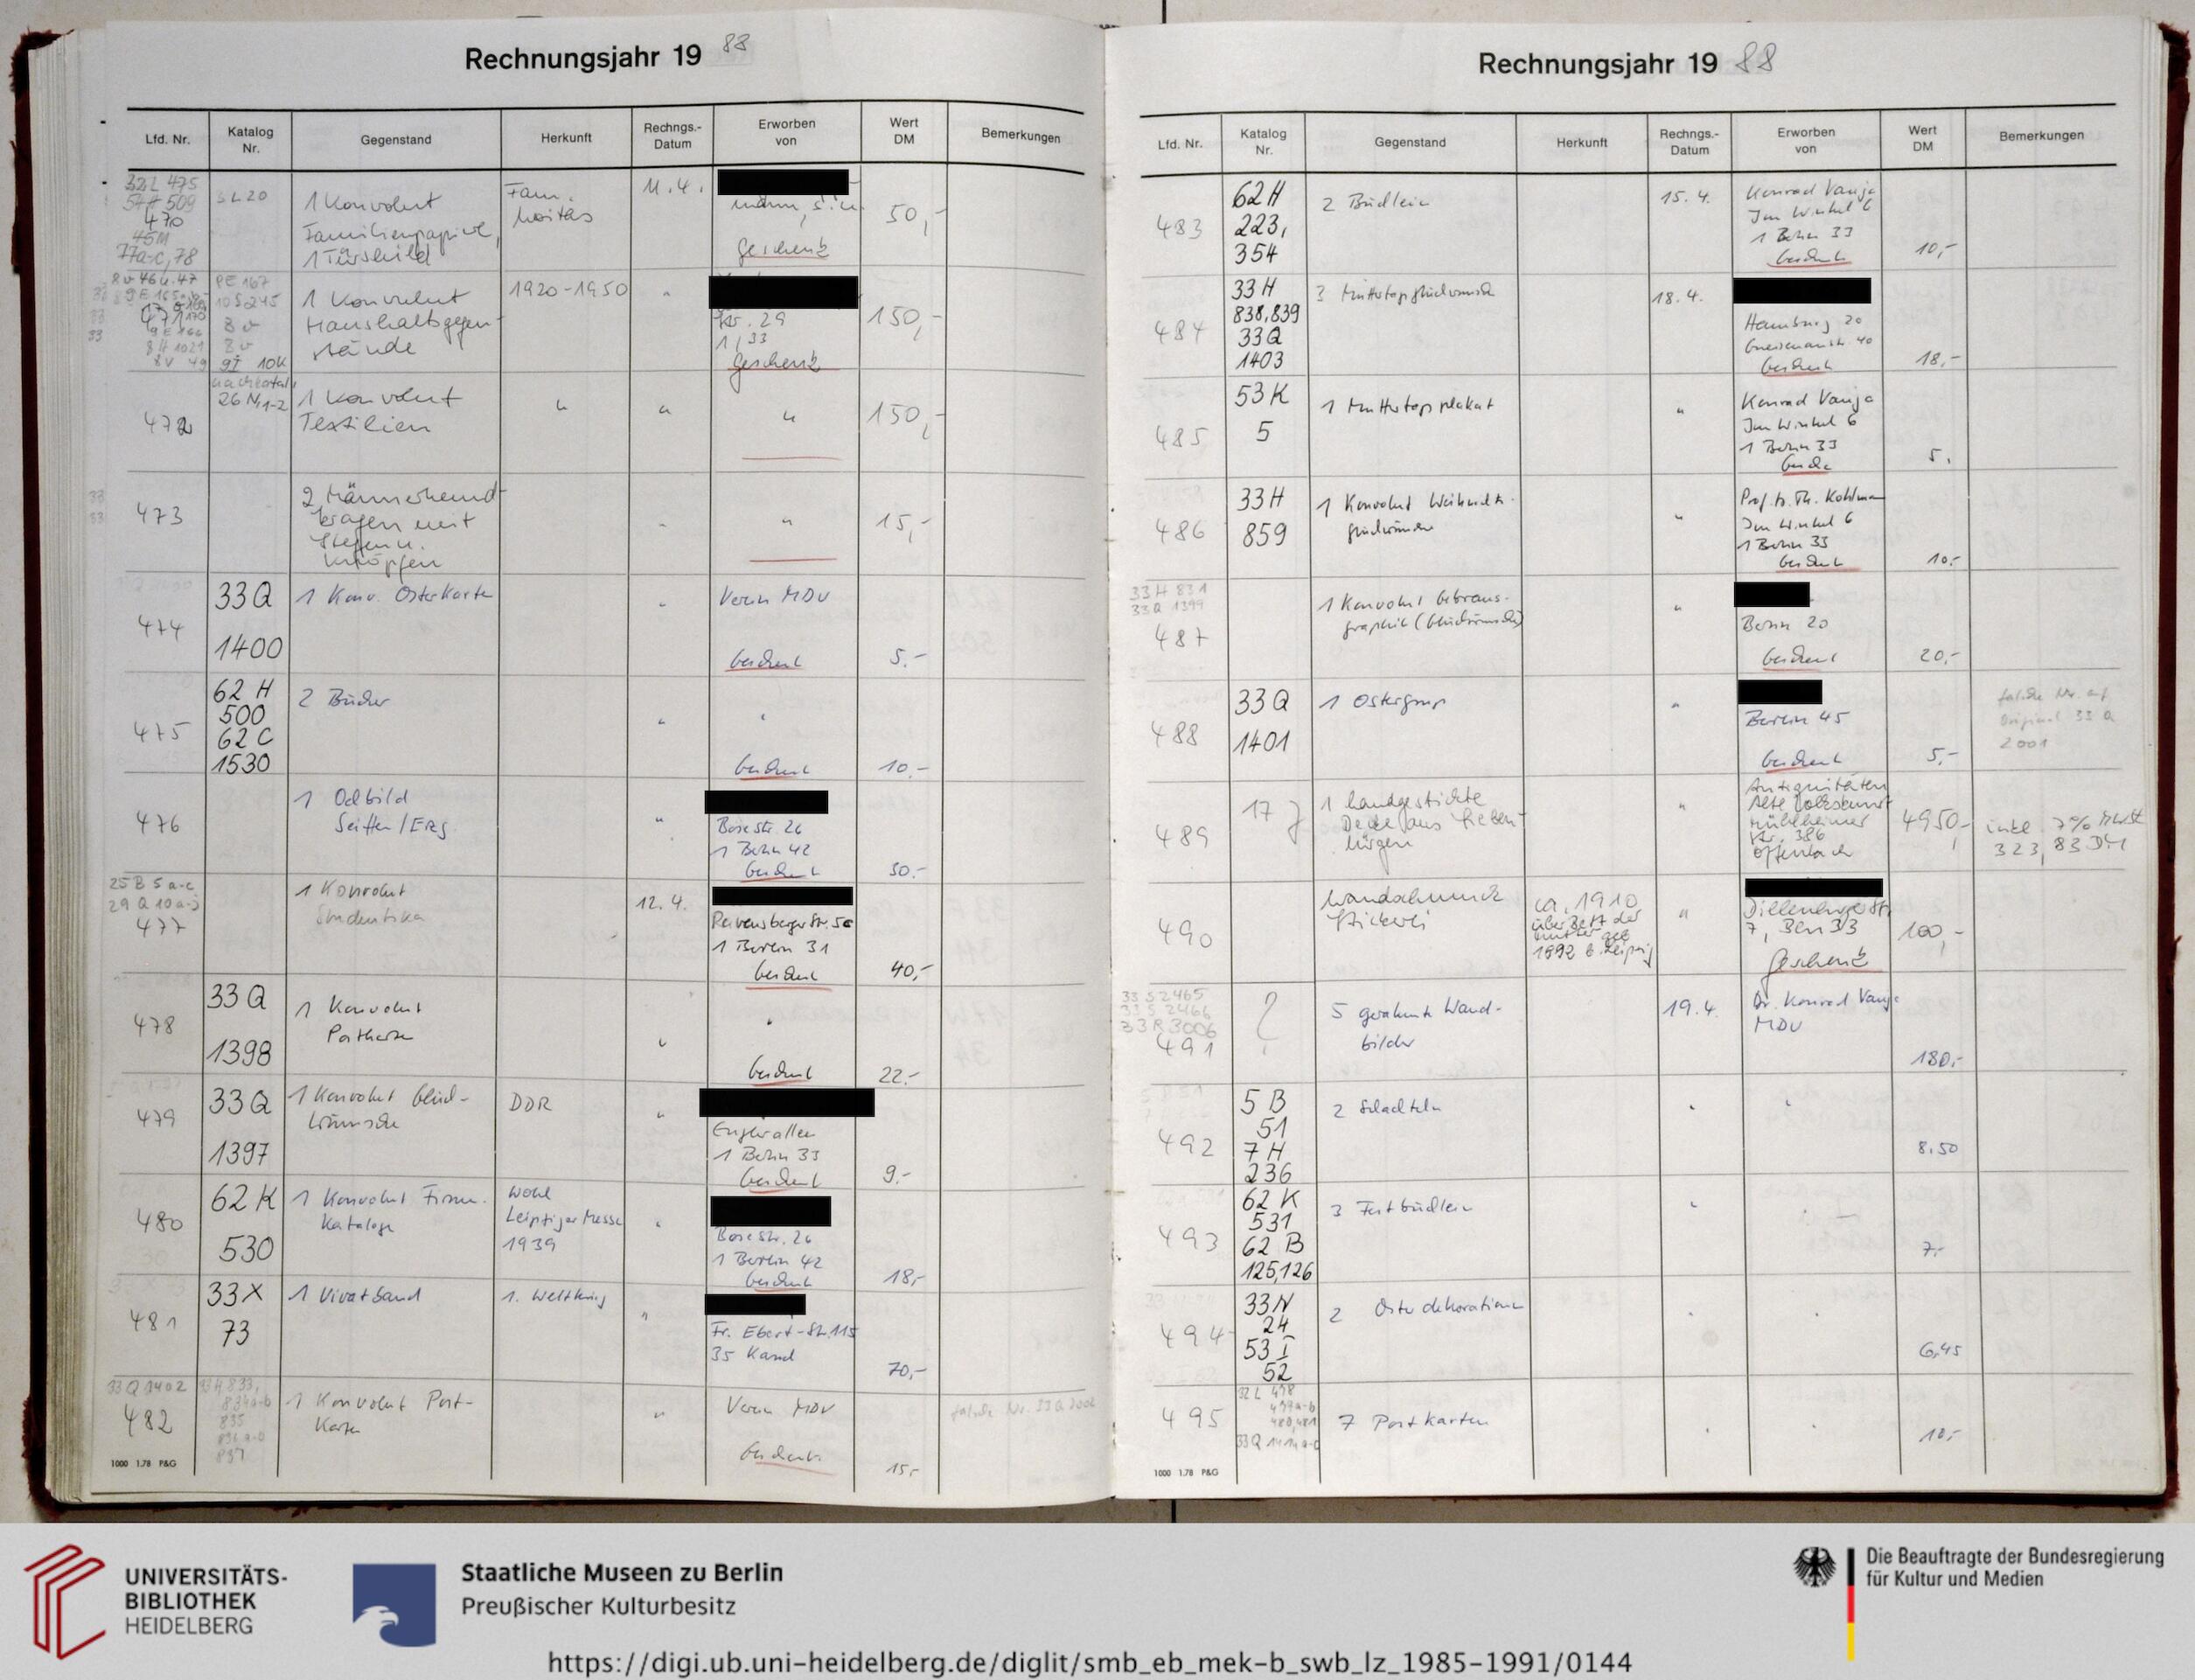 Rechnungsjahr 19 88
Lfd. Nr.
Katalog
Nr.
Gegenstand
Herkunft
Rechngs.-
Datum
Erworben
von
Wert
DM
Bemerkungen
470
3 L 20
1 Konvolut
Familienpapiere,
1 Türschild
Fam.
11.4.
Geschenk
50,-
77a-c, 78
471
1 Konvolut
Haushaltsgegen-
stände
1920-1950
"
Str. 29
1/33
Geschenk
150,-
472
26 N, 1-2
1 Konvolut
Textilien
"
"
"
150,-
473
2 Männerhemd-
kragen mit
Stegen u.
Knöpfen
"
"
15,-
474
33 Q
1400
1 Konv. Osterkarten
"
Verein MDV
Geschenk
5.-
475
62 H
500
62 C
1530
2 Bücher
"
"
Geschenk
10.-
476
1 Oelbild
Seiffen/Erg.
"
Bosestr. 26
1 Berlin 42
Geschenk
30.-
25 B 5 a-c
29 Q 10 a-j
477
1 Konvolut
Studentika
12.4.
Ravensberger Str. 5c
1 Berlin 31
Geschenk
40,-
478
33 Q
1398
1 Konvolut
Postkarten
"
"
Geschenk
22.-
479
33 Q
1397
1 Konvolut Glück-
wünsche
DDR
"
Englerallee
1 Berlin 33
Geschenk
9.-
480
62 K
530
1 Konvolut Firmen-
kataloge
wohl
Leipziger Messe
1939
"
Bosestr. 26
1 Berlin 42
Geschenk
18,-
481
33 X
73
1 Vivatband
1. Weltkrieg
"
Fr. Ebert-Str. 115
35 Kassel
70,-
33 Q 1402
482
33 H 833,
834a-b
835
836 a-b
837
1 Konvolut Post-
karten
"
Verein MDV
Geschenk
15,-
falsche Nr. 33 Q 2002
1000 1.78 P&G
Rechnungsjahr 19 88
Lfd. Nr.
Katalog
Nr.
Gegenstand
Herkunft
Rechngs.-
Datum
Erworben
von
Wert
DM
Bemerkungen
483
62 H
223,
354
2 Büchlein
15.4.
Konrad Vanja
Im Winkel 6
1 Berlin 33
Geschenk
10,-
484
33 H
838,839
33 Q
1403
3 Muttertagsglückwünsche
18.4.
Hamburg 20
Gneisenaustr. 40
Geschenk
18,-
485
53 K
5
1 Muttertagsplakat
"
Konrad Vanja
Im Winkel 6
1 Berlin 33
5.
486
33 H
859
1 Konvolut Weihnachts-
glückwünsche
"
Prof. Dr. Th. Kohlmann
Im Winkel 6
1 Berlin 33
Geschenk
10.-
33 H 831
33 Q 1399
487
1 Konvolut Gebrauchs-
graphik (Glückwünsche)
"
Berlin 20
Geschenk
20,-
488
33 Q
1401
1 Ostergruß
"
Berlin 45
Geschenk
5,-
falsche Nr. auf
Original 33 Q
2001
489
17 J
1 handgestickte
Decke aus Sieben-
bürgen
"
Antiquitäten
Alte Volkskunst
Mühlheimer
Str. 386
Offenbach
4950,-
inkl. 7% MwSt
323,83 DM
490
Wandschmuck
Stickerei
ca. 1910
über Bett der
Mutter geb
1892 b. Leipzig
"
Dillenburgerstr.
7, Bln 33
Geschenk
100,-
33 S 2465
33 S 2466
33 R 3006
491
?
5 gerahmte Wand-
bilder
19.4.
Dr. Konrad Vanja
MDV
180,-
492
5 B
51
7 H
236
2 Schachteln
"
"
8.50
493
62 K
531
62 B
125,126
3 Festbüchlein
"
"
7.-
494
33 N
24
53 I
52
2 Osterdekorationen
"
"
6,45
495
32 L 478
479a-b
480,481
33 Q 1414 a-c
7 Postkarten
"
"
10,-
1000 1.78 P&G
UNIVERSITÄTS-
BIBLIOTHEK
HEIDELBERG
Staatliche Museen zu Berlin
Preußischer Kulturbesitz
Die Beauftragte der Bundesregierung
für Kultur und Medien
https://digi.ub.uni-heidelberg.de/diglit/smb_eb_mek-b_swb_lz_1985-1991/0144